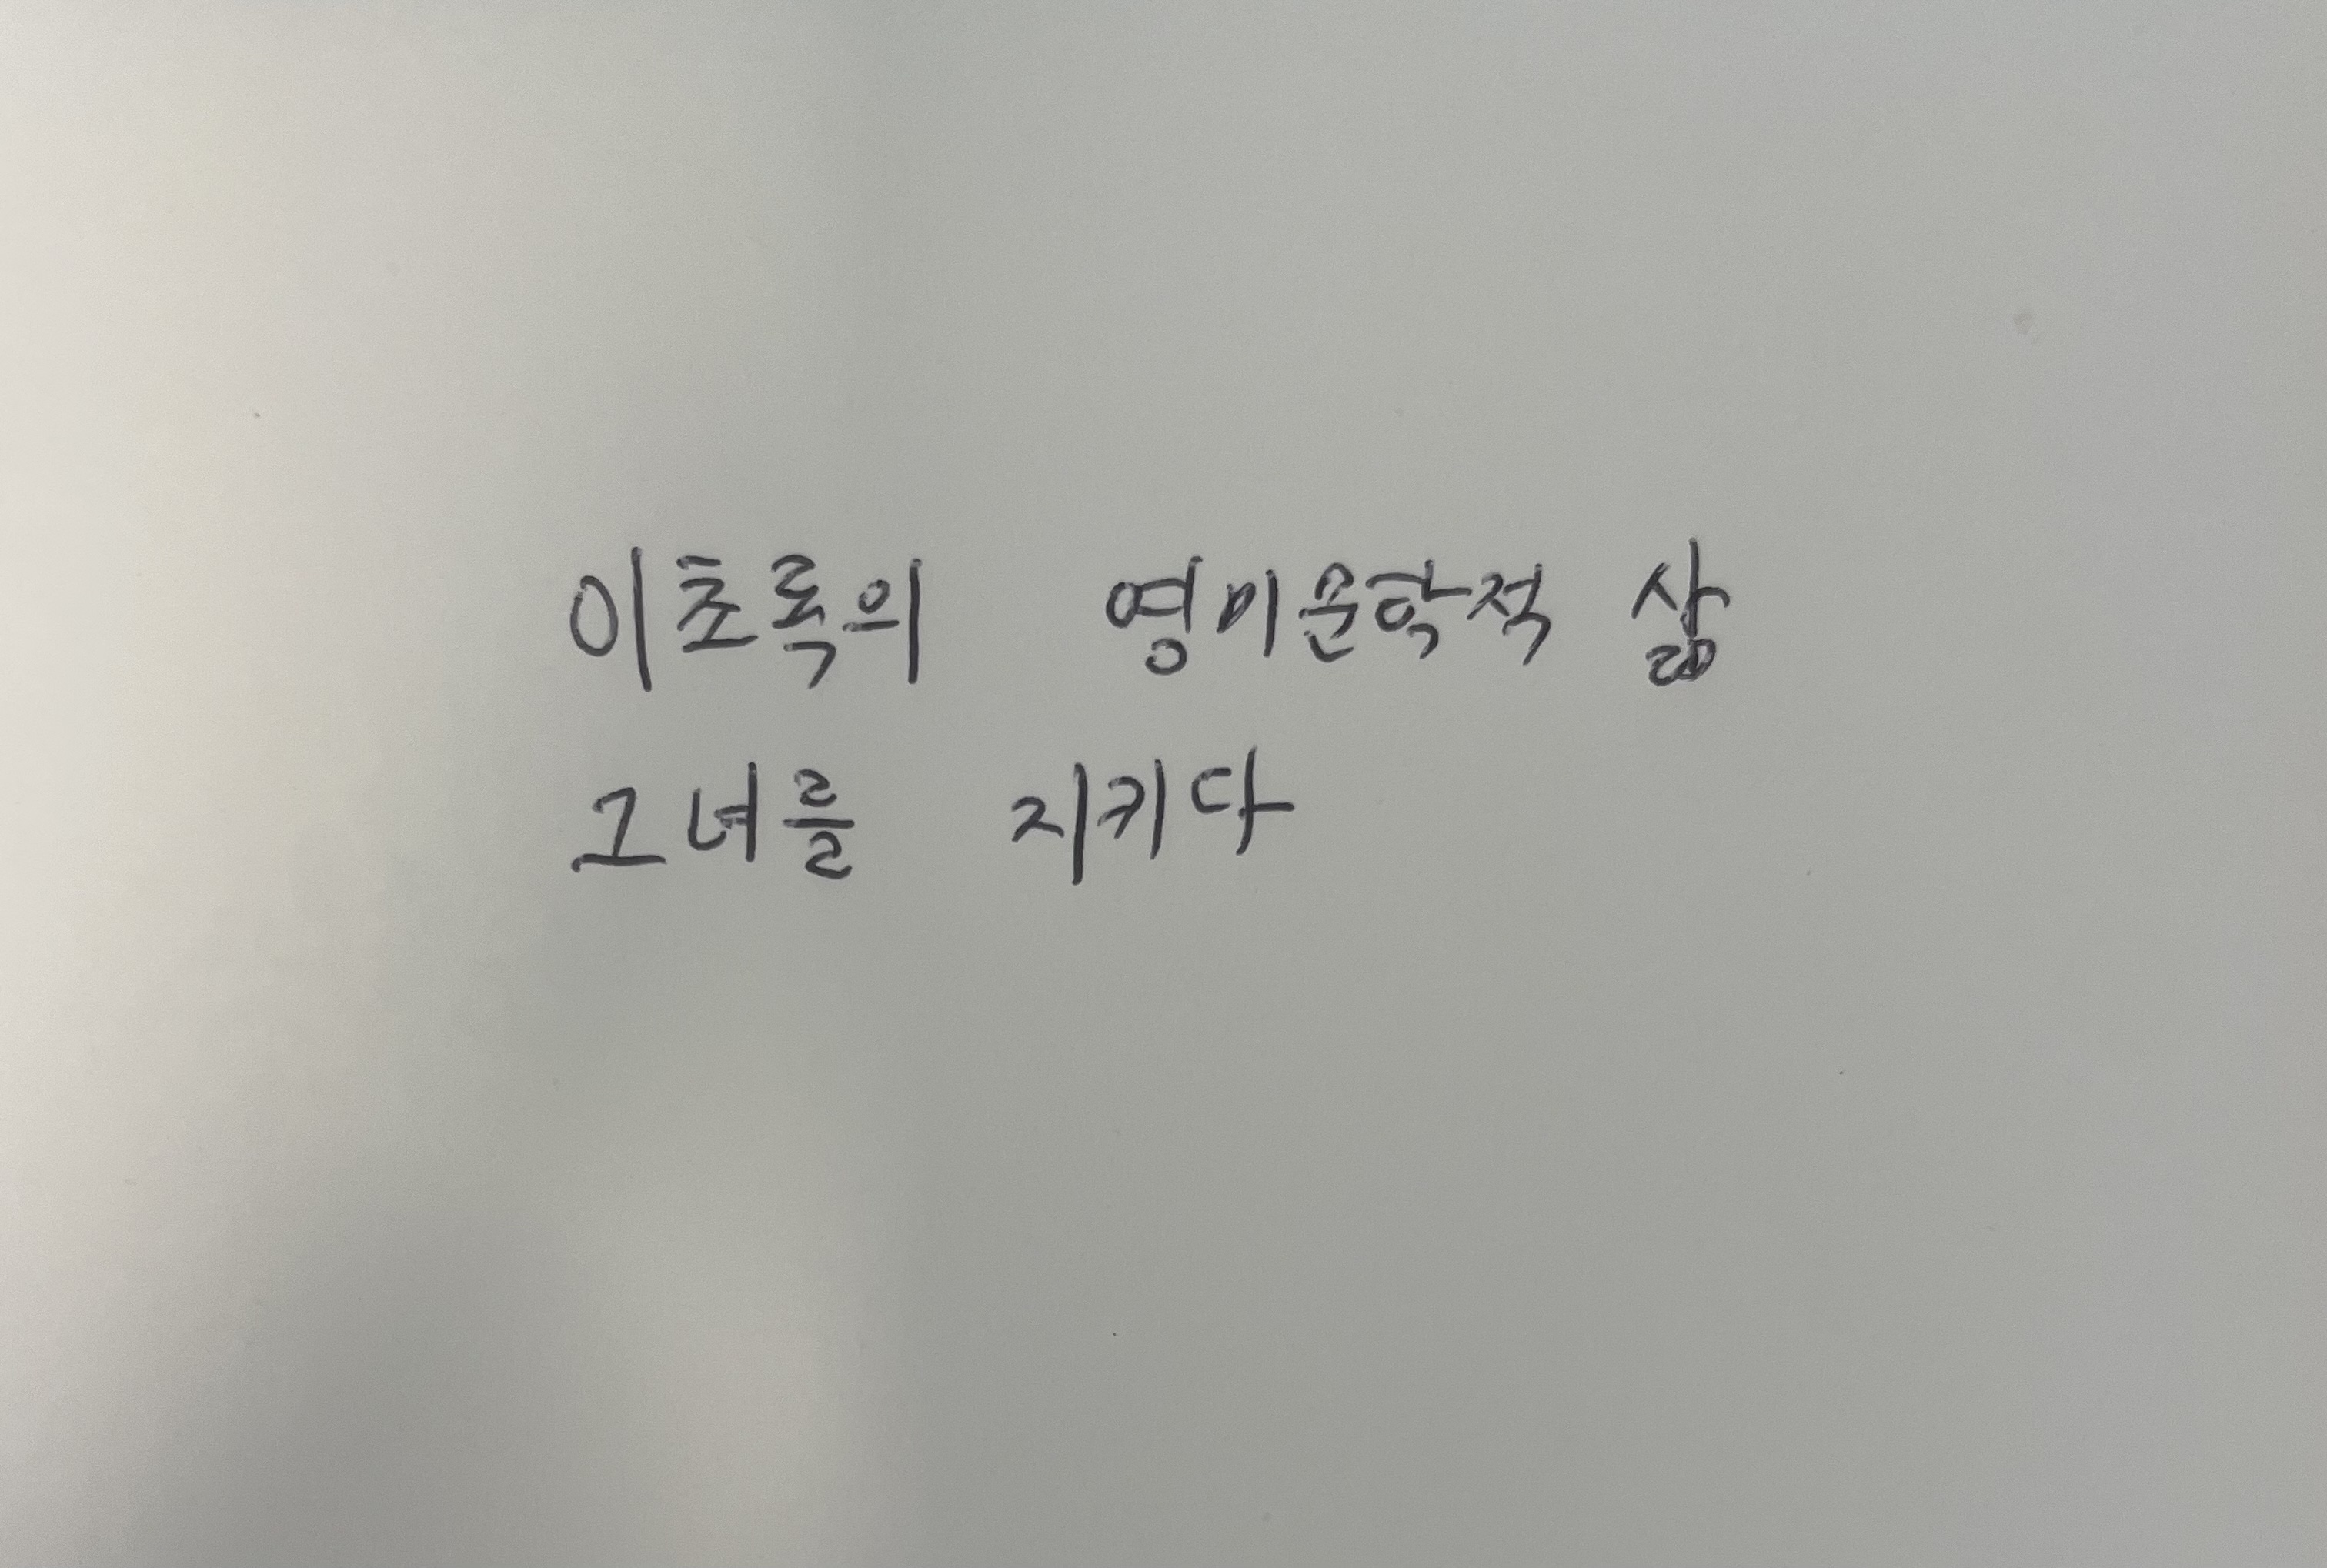 이초록의 영미문학적 삶
그녀를 지키다